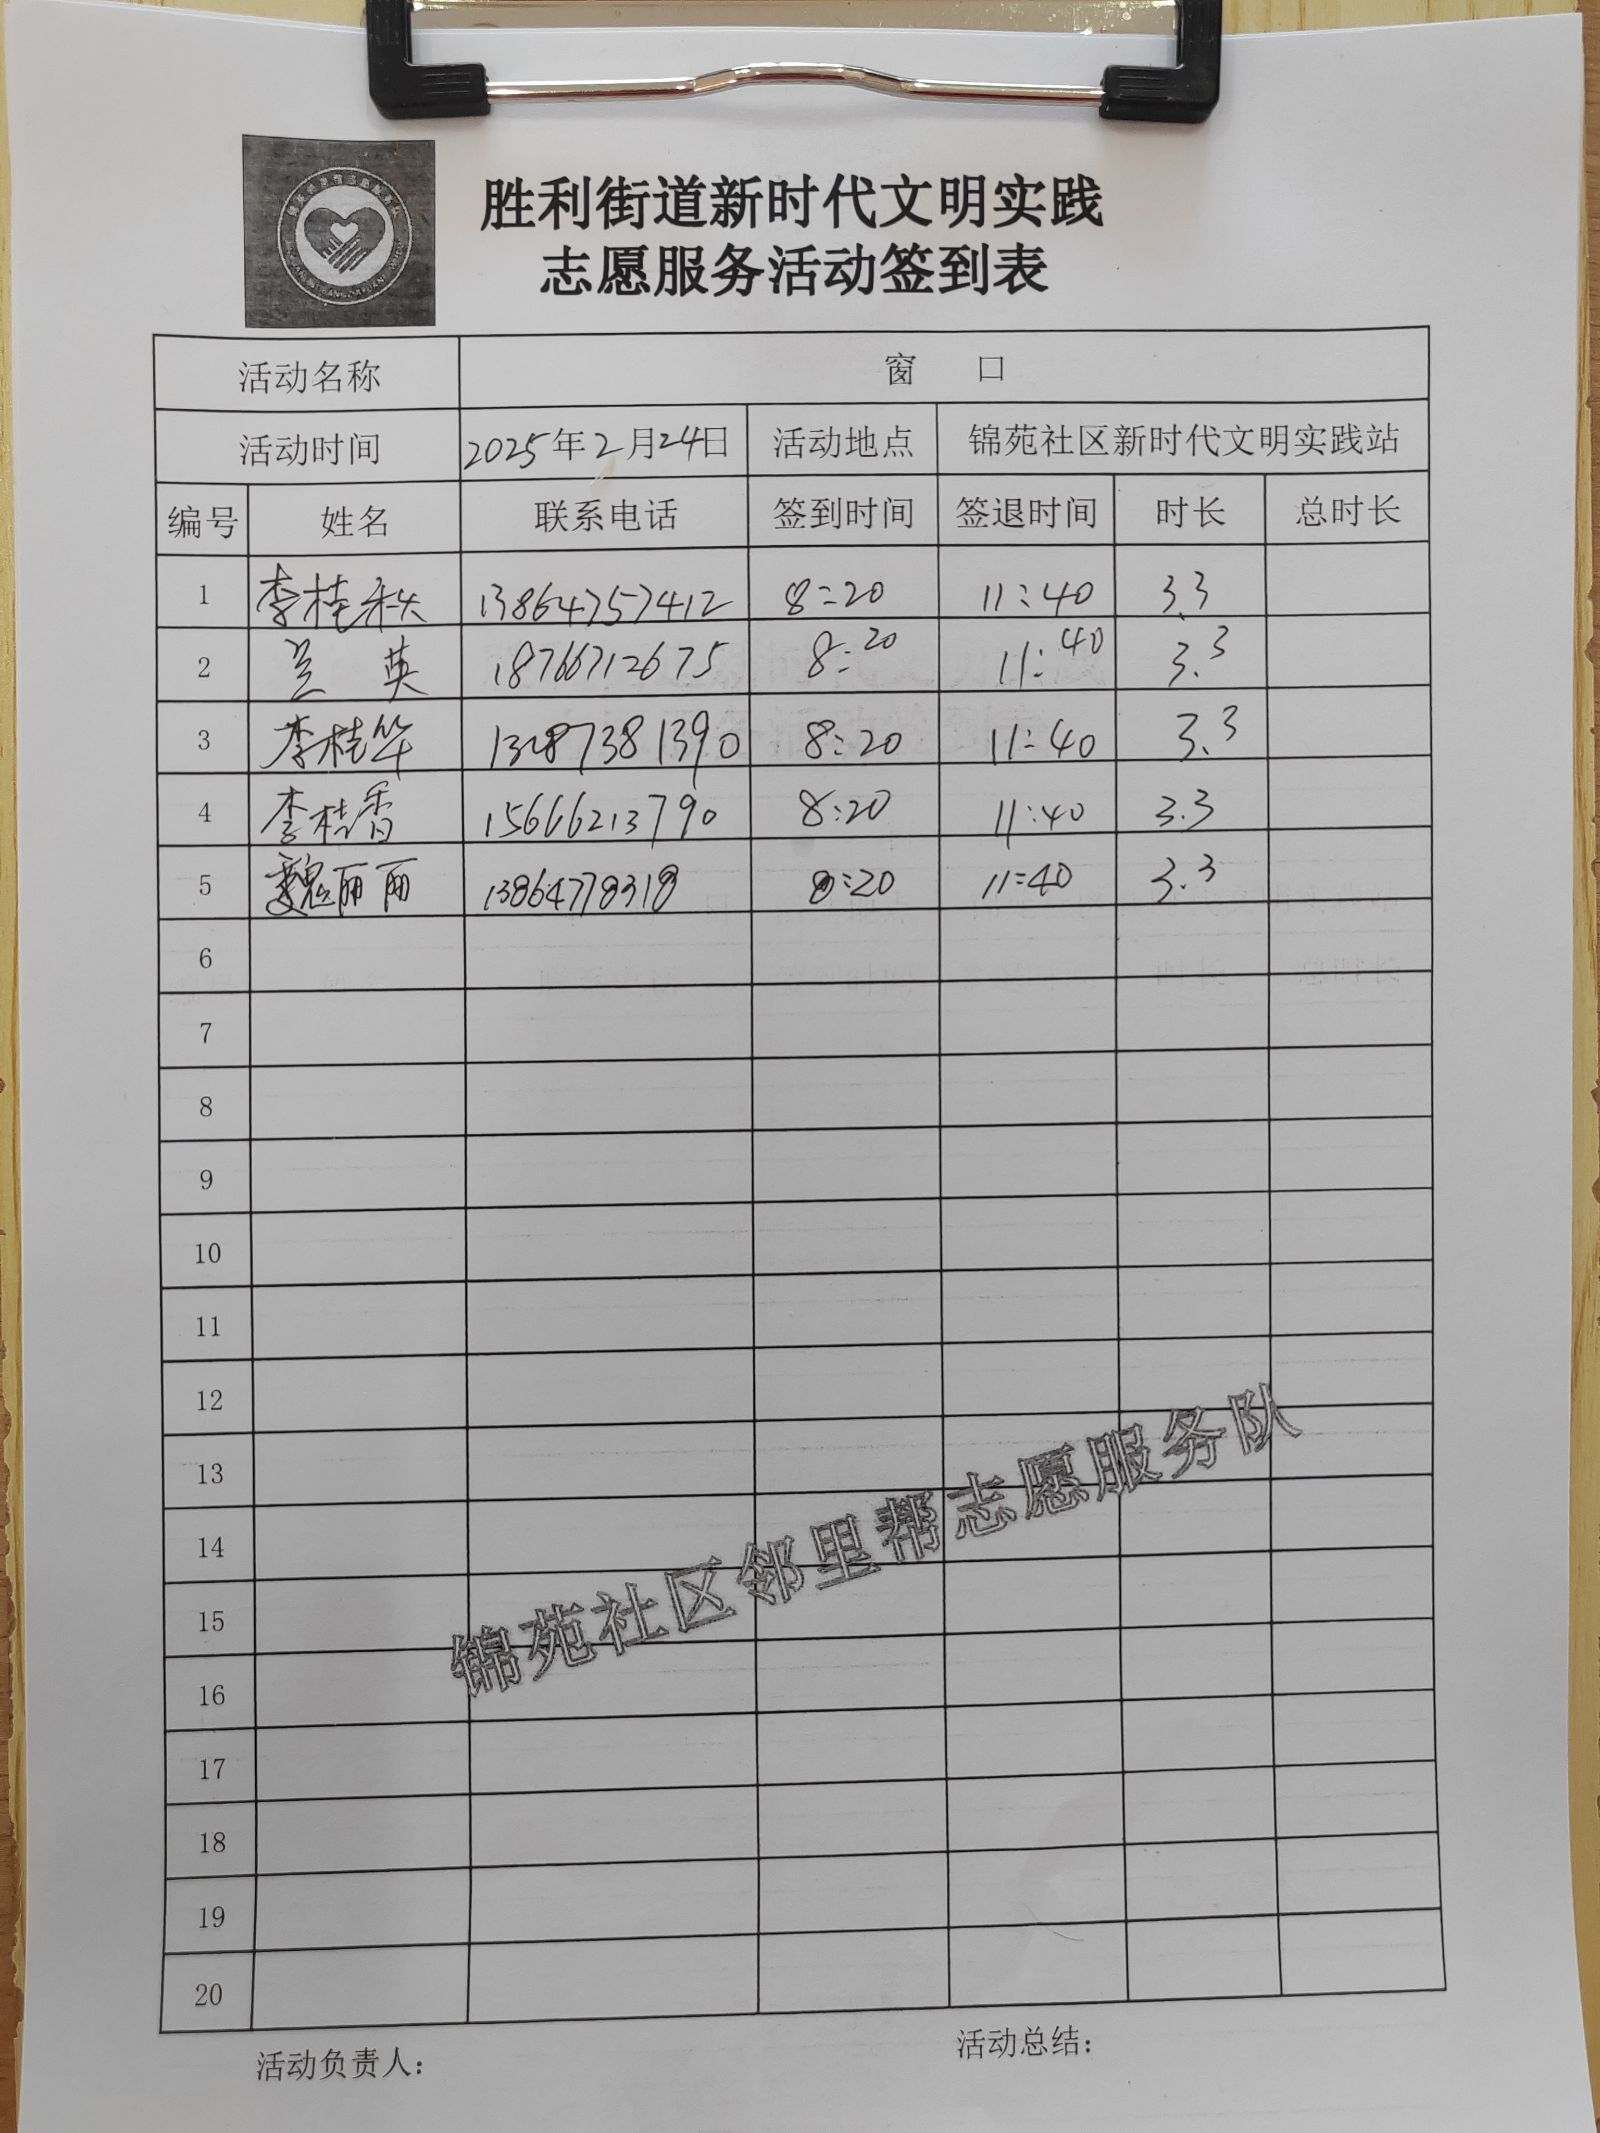 胜利街道新时代文明实践
志愿服务活动签到表
活动名称 窗 口
活动时间 2025年2月24日 活动地点 锦苑社区新时代文明实践站
编号 姓名 联系电话 签到时间 签退时间 时长 总时长
1 李桂秋 13864757412 8:20 11:40 3.3
2 兰 英 18766712675 8:20 11:40 3.3
3 李桂华 13287381390 8:20 11:40 3.3
4 李桂香 15666213790 8:20 11:40 3.3
5 魏丽丽 13864778318 8:20 11:40 3.3
6
7
8
9
10
11
12
13
14
15
16
17
18
19
20
锦苑社区邻里帮志愿服务队
活动负责人: 活动总结: